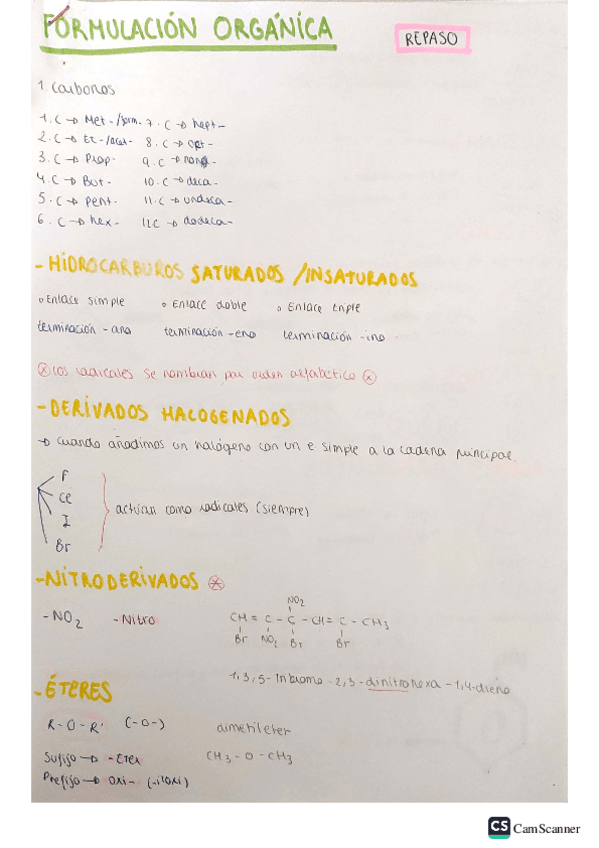 FORMULACIÓN ORGÁNICA
REPASO
1. Carbonos
1. C → Met-/form- 7. C → hept-
2. C → Et-/acet- 8. C → oct-
3. C → Prop- 9. C → nona-
4. C → But- 10. C → deca-
5. C → pent- 11. C → undeca-
6. C → hex- 12 C → dodeca-
- HIDROCARBUROS SATURADOS / INSATURADOS
Enlace simple Enlace doble Enlace triple
terminación -ano terminación -eno terminación -ino
los radicales se nombran por orden alfabético
- DERIVADOS HALOGENADOS
→ Cuando añadimos un halógeno con un e simple a la cadena principal.
F
Cl
I
Br
actúan como radicales (siempre)
- NITRODERIVADOS
NO2
- NO2 - Nitro CH = C - C - CH = C - CH3
Br NO2 Br Br
1,3,5-Tribromo-2,3-dinitrohexa-1,4-dieno
- ÉTERES
R-O-R' (-O-) dimetileter
Sufijo → -Eter CH3 - O - CH3
Prefijo → Oxi- (-iloxi)
CS CamScanner